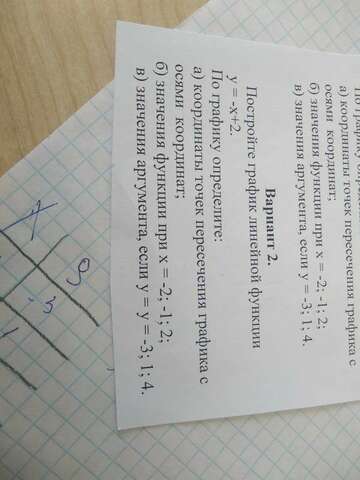 По графику определи
а) координаты точек пересечения графика с
осями координат;
б) значения функции при x = -2; -1; 2;
в) значения аргумента, если y = -3; 1; 4.
Вариант 2.
Постройте график линейной функции
y = -x+2.
По графику определите:
а) координаты точек пересечения графика с
осями координат;
б) значения функции при x = -2; -1; 2;
в) значения аргумента, если y = y = -3; 1; 4.
x y
-3